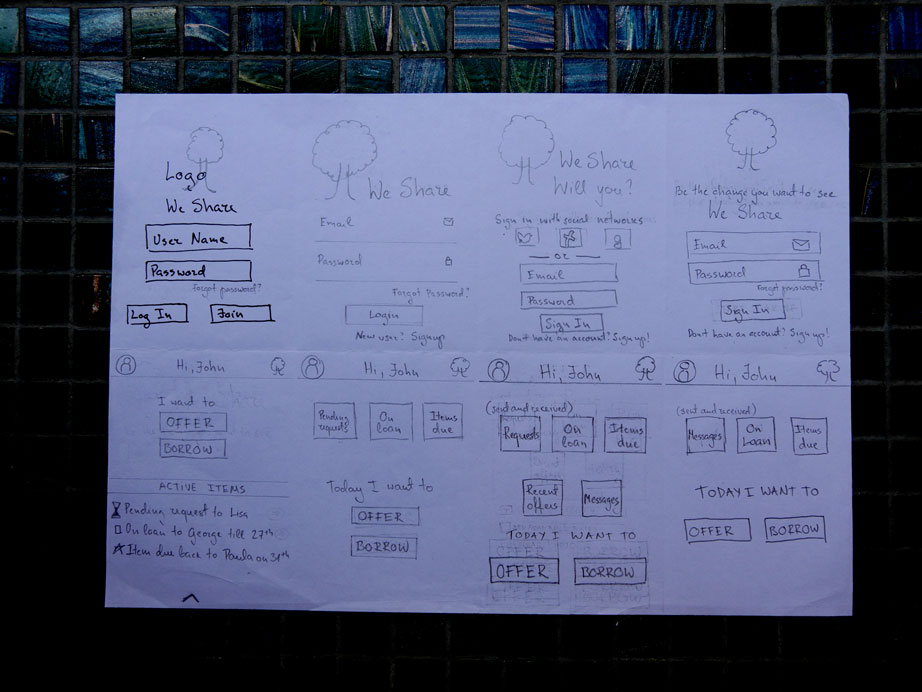 Logo
We Share
User Name
Password
Forgot password?
Log In
Join
We Share
Email
Password
Forgot Password?
Login
New user? Sign up
We Share
Will you?
Sign in with social networks
OR
Email
Password
Sign In
Don't have an account? Sign up!
Be the change you want to see
We Share
Email
Password
Forgot password?
Sign In
Don't have an account? Sign up!
Hi, John
I want to
OFFER
BORROW
ACTIVE ITEMS
Pending request to Lisa
On loan to George till 27th
Item due back to Paula on 31th
Hi, John
Pending
requests
On
loan
Items
due
Today I want to
OFFER
BORROW
Hi, John
(sent and received)
Requests
On
loan
Items
due
Recent
offers
Messages
TODAY I WANT TO
OFFER
BORROW
Hi, John
(sent and received)
Messages
On
Loan
Items
due
TODAY I WANT TO
OFFER
BORROW